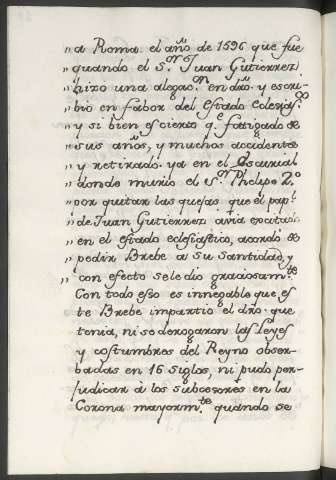 „a Roma el año de 1596 que fue
„quando el S.or Juan Gutierrez
„hizo una alegac.on en dro. y escri-
„bio en fabor del estado eclesias.co
„y si bien es cierto q.e fatigado de
„sus años, y muchos accidentes
„y retirado ya en el Escurial
„donde murio el S.or Phelipe 2.o
„por quitar las quejas que el pap.l
„de Juan Gutierrez avia excitado
„en el estado eclesiastico, acordo de
„pedir Brebe a su Santidad, y
„con efecto se le dio graciosam.te
Con todo eso es innegable que es
te Brebe impartio el dro. que
tenia, ni se derogaron las leyes
y costumbres del Reyno obser-
badas en 16 siglos, ni pudo per-
judicar á los subcesores en la
Corona mayorm.te quando se